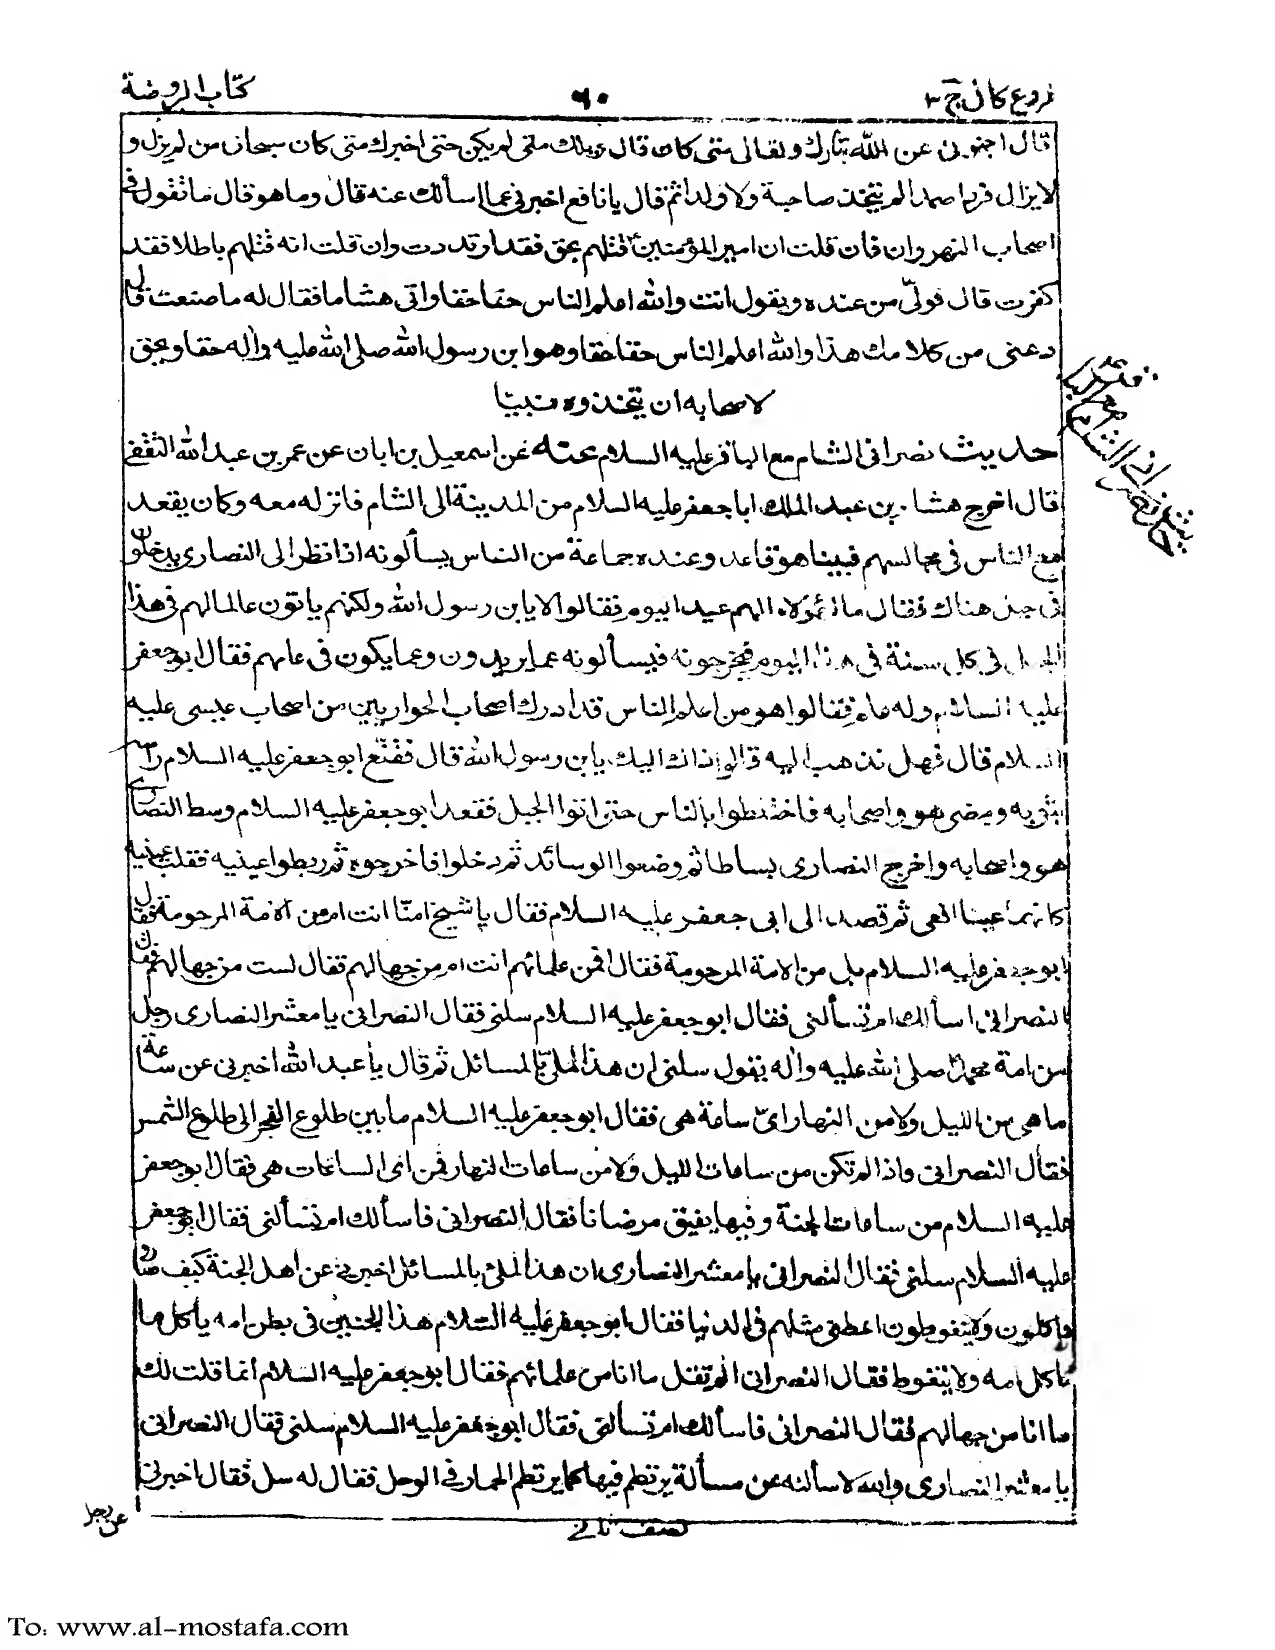 فروع كافى ج ٣
٦٠
كتاب الروضة
قال اخبرنى عن الله تبارك وتعالى متى كان قال ويلك متى لم يكن حتى اخبرك متى كان سبحان من لم يزل و
لا يزال فردا صمدا لم يتخذ صاحبة ولا ولدا ثم قال يا نافع اخبرنى عما اسألك عنه قال وما هو قال ما تقول فى
اصحاب النهروان فان قلت ان امير المؤمنين قتلهم بحق فقد ارتددت وان قلت انه قتلهم باطلا فقد
كفرت قال فولّى من عنده ويقول انت والله اعلم الناس حقا حقا واتى هشاما فقال له ما صنعت قال
دعنى من كلامك هذا والله اعلم الناس حقا حقا وهو ابن رسول الله صلى الله عليه وآله حقا ويحق
لاصحابه ان يتخذوه نبيّا
حديث نصرانى الشام مع الباقر عليه السلام عنه عن اسمعيل بن ابان عن عمر بن عبد الله الثقفى
قال اخرج هشام بن عبد الملك ابا جعفر عليه السلام من المدينة الى الشام فانزله معه وكان يقعد
مع الناس فى مجالسهم فبينا هو قاعد وعنده جماعة من الناس يسألونه اذا نظر الى النصارى يدخلون
فى جبل هناك فقال ما لهؤلاء الهم عيد اليوم فقالوا لا يا بن رسول الله ولكنهم ياتون عالما لهم فى هذا
الجبل فى كل سنة فى هذا اليوم فيخرجونه فيسألونه عما يريدون وعما يكون فى عامهم فقال ابو جعفر
عليه السلام وله علم فقالوا هو من اعلم الناس قد ادرك اصحاب الحواريين من اصحاب عيسى عليه
السلام قال فهل نذهب اليه قالوا ذاك اليك يا بن رسول الله قال فقنّع ابو جعفر عليه السلام راسه
بثوبه ومضى هو واصحابه فاختلطوا بالناس حتى اتوا الجبل فقعد ابو جعفر عليه السلام وسط النصارى
هو واصحابه واخرج النصارى بساطا ثم وضعوا الوسائد ثم دخلوا فاخرجوه ثم ربطوا عينيه فقلب عينيه
كانهما عينا افعى ثم قصد الى ابى جعفر عليه السلام فقال يا شيخ امنّا انت ام من الامة المرحومة فقال
ابو جعفر عليه السلام بل من الامة المرحومة فقال افمن علمائهم انت ام من جهالهم فقال لست من جهالهم فقال
النصرانى اسألك ام تسألنى فقال ابو جعفر عليه السلام سلنى فقال النصرانى يا معشر النصارى رجل
من امة محمد صلى الله عليه وآله يقول سلنى ان هذا لملىّ بالمسائل ثم قال يا عبد الله اخبرنى عن ساعة
ما هى من الليل ولا من النهار اىّ ساعة هى فقال ابو جعفر عليه السلام ما بين طلوع الفجر الى طلوع الشمس
فقال النصرانى واذا لم تكن من ساعات الليل ولا من ساعات النهار فمن اى الساعات هى فقال ابو جعفر
عليه السلام من ساعات الجنة وفيها يفيق مرضانا فقال النصرانى فاسألك ام تسألنى فقال ابو جعفر
عليه السلام سلنى فقال النصرانى يا معشر النصارى ان هذا لملئ بالمسائل اخبرنى عن اهل الجنة كيف صاروا
ياكلون ولا يتغوطون اعطنى مثلهم فى الدنيا فقال ابو جعفر عليه السلام هذا الجنين فى بطن امه ياكل مما
تاكل امه ولا يتغوط فقال النصرانى الم تقل ما انا من علمائهم فقال ابو جعفر عليه السلام انما قلت لك
ما انا من جهالهم فقال النصرانى فاسألك ام تسألنى فقال ابو جعفر عليه السلام سلنى فقال النصرانى
يا معشر النصارى والله لاسألنه عن مسألة يرتطم فيها كما يرتطم الحمار فى الوحل فقال له سل فقال اخبرنى
عن رجل
نصف ثانى
To: www.al-mostafa.com